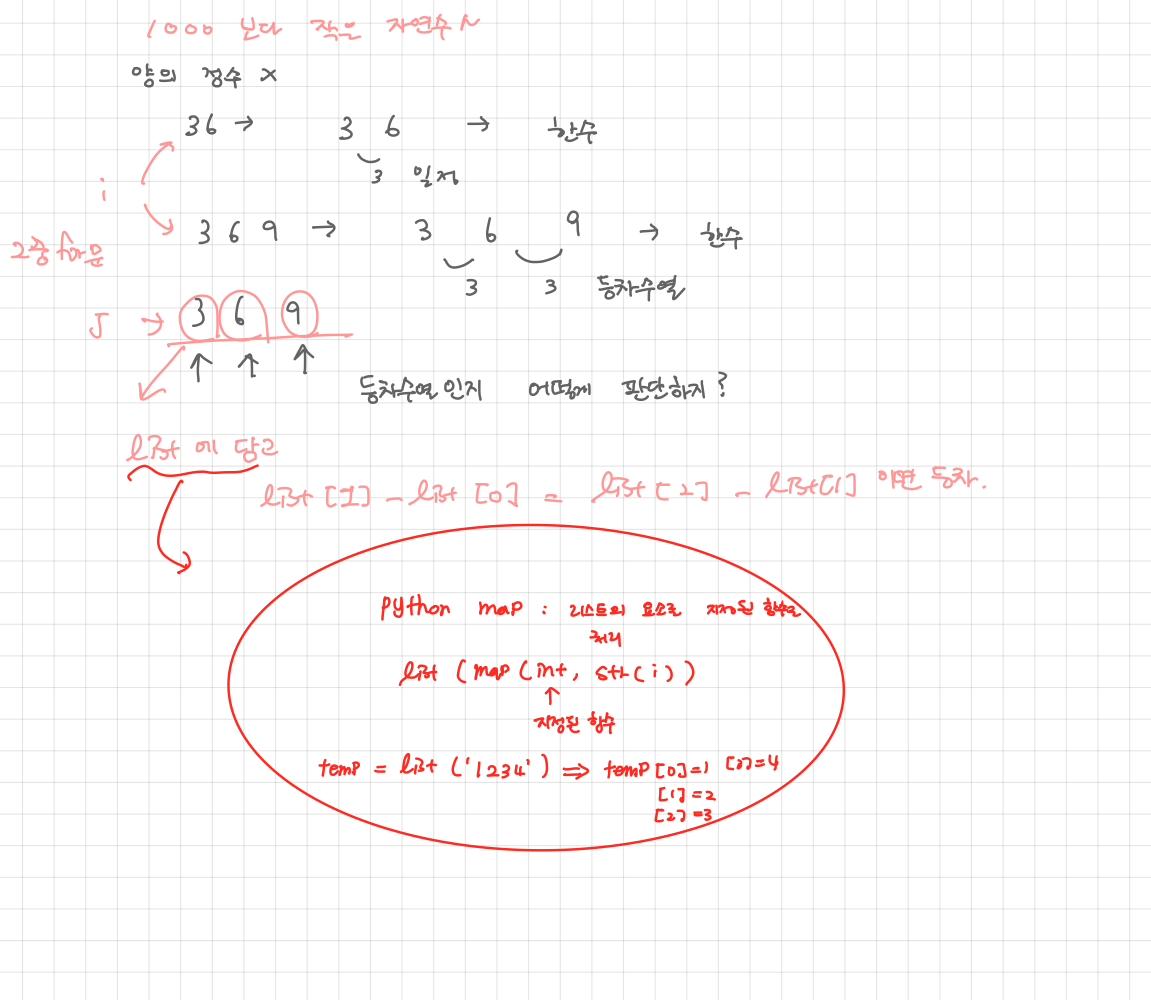 1000 보다 작은 자연수 N
양의 정수 X
36 → 3 6 → 한수
3 일정
i
3 6 9 → 3 6 9 → 한수
2중 for문
3 3 등차수열
J → 3 6 9
등차수열인지 어떻게 판단하지?
list 에 담고
list [1] - list [0] = list [2] - list[1] 이면 등차.
python map : 리스트의 요소를 지정된 함수로
처리
list (map (int, str(i))
↑
지정된 함수
temp = list ('1234') ⇒ temp [0]=1 [3]=4
[1] =2
[2] =3